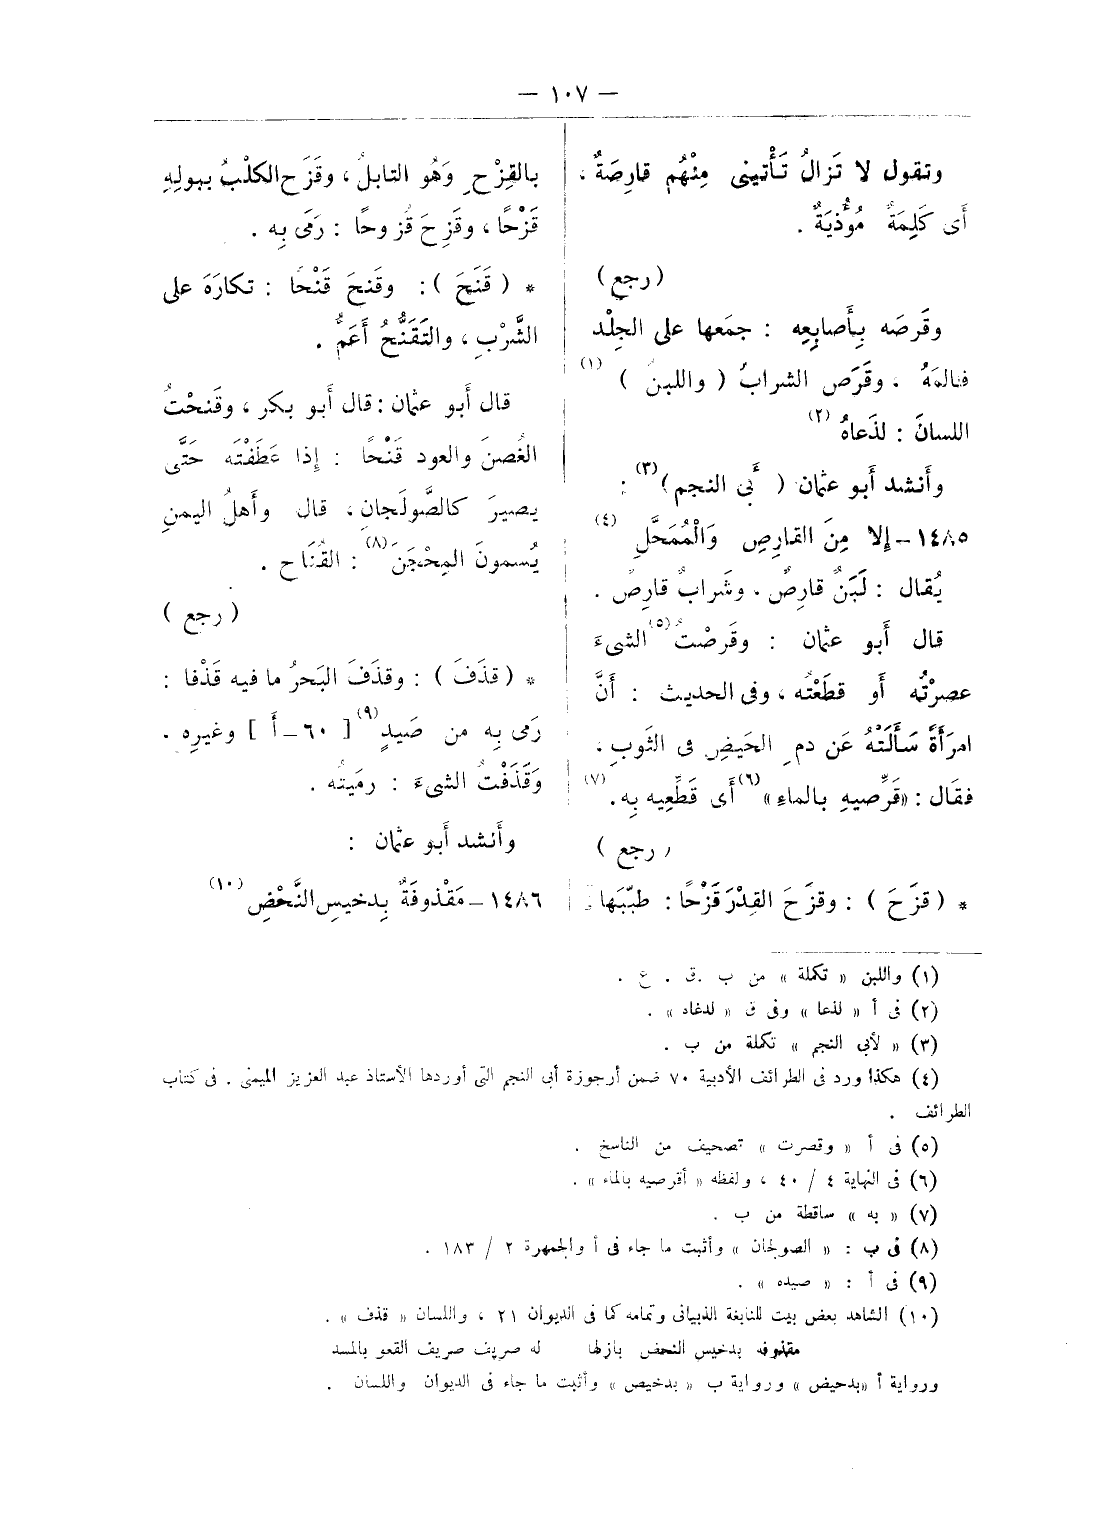 — ١٠٧ —
وتقول لا تَزالُ تَأْتينى مِنْهُم قارِصَةٌ ،
أَى كَلِمَةٌ مُؤْذيَةٌ .
(رجع)
وقَرصَه بِأَصابِعِه : جمَعها على الجِلْد
فآلمَهُ ، وقَرَص الشرابُ ( واللبنُ ) (١)
اللسانَ : لذَعاهُ (٢)
وأَنشد أَبو عثمان ( لأَبى النجم ) (٣) :
١٤٨٥ – إلا مِنَ القارِصِ وَالْمُمَحَّلِ (٤)
يُقال : لَبَنٌ قارِصٌ ، وشَرابٌ قارِصٌ .
قال أَبو عثمان : وقَرصْتُ (٥) الشىءَ
عصرْتُه أَو قطَعْتُه ، وفى الحديث : أَنَّ
امرَأَةً سَأَلَتْهُ عَن دمِ الحَيضِ فى الثَوبِ ،
فقَال : «قَرِّصيهِ بالماءِ» (٦) أَى قَطِّعِيه بِه . (٧)
( رجع )
* ( قزَحَ ) : وقزَحَ القِدْرَ قَزْحًا : طيَّبَها
بالقِزْحِ وَهُو التابلُ ، وقَزَح الكلْبُ ببولِهِ
قَزْحًا ، وقَزِحَ قُزوحًا : رَمَى بِه .
* ( قَنَحَ ) : وقَنحَ قَنْحًا : تكارَهَ على
الشَّرْبِ ، والتَقَنُّحُ أَعَمُّ .
قال أَبو عثمان : قال أَبو بكر ، وقَنحْتُ
الغُصنَ والعود قَنْحًا : إِذا عَطَفْتَه حَتَّى
يصيرَ كالصَّولَجانِ ، قال وأَهلُ اليمنِ
يُسمونَ المِحْجَنَ (٨) : القُنَاح .
( رجع )
* ( قذَفَ ) : وقذَفَ البَحرُ ما فيه قَذْفا :
رَمى بِه من صَيدٍ (٩) [ ٦٠ – أَ ] وغيرِه .
وَقَذَفْتُ الشىءَ : رميتُه .
وأَنشد أَبو عثمان :
١٤٨٦ – مَقْذوفَةٌ بِدخيسِ النَّحْضِ (١٠)
(١) واللبن « تكملة » من ب . ق . ع .
(٢) فى أ « لذعا » وفى ق « لدغاه » .
(٣) « لأبى النجم » تكملة من ب .
(٤) هكذا ورد فى الطرائف الأدبية ٧٠ ضمن أرجوزة أبى النجم التى أوردها الأستاذ عبد العزيز الميمنى . فى كتاب
الطرائف .
(٥) فى أ « وقصرت » تصحيف من الناسخ .
(٦) فى النهاية ٤ / ٤٠ ، ولفظه « أقرصيه بالماء » .
(٧) « به » ساقطة من ب .
(٨) فى ب : « الصولجان » وأثبت ما جاء فى أ والجمهرة ٢ / ١٨٣ .
(٩) فى أ : « صيده » .
(١٠) الشاهد بعض بيت للنابغة الذبيانى وتمامه كما فى الديوان ٢١ ، واللسان « قذف » .
مقذوفه بدخيس النحض بازلها له صريف صريف القعو بالمسد
ورواية أ «بدحيض» ورواية ب « بدخيص » وأثبت ما جاء فى الديوان واللسان .